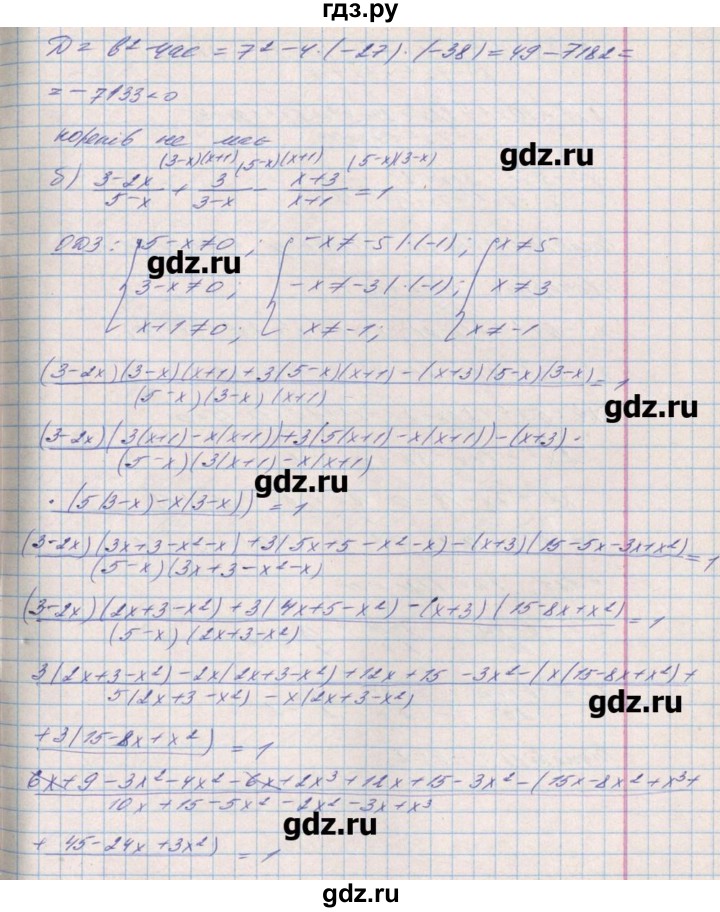 гдз.ру
Д = b² - 4ac = 7² - 4·(-27)·(-38) = 49 - 7182 =
= -7133 < 0
коренів не має
gdz.ru
(3-x)(x+1) (5-x)(x+1) (5-x)(3-x)
б) (3-2x)/(5-x) + 3/(3-x) - (x+3)/(x+1) = 1
ОДЗ: { 5-x≠0; { -x≠-5 |·(-1); { x≠5
gdz.ru
3-x≠0; -x≠-3 |·(-1); x≠3
x+1≠0; x≠-1; x≠-1
(3-2x)(3-x)(x+1)+3(5-x)(x+1)-(x+3)(5-x)(3-x) = 1
(5-x)(3-x)(x+1)
gdz.ru
(3-2x)(3(x+1)-x(x+1))+3(5(x+1)-x(x+1))-(x+3)·
(5-x)(3(x+1)-x(x+1)
gdz.ru
·(5(3-x)-x(3-x)) = 1
(3-2x)(3x+3-x²-x)+3(5x+5-x²-x)-(x+3)(15-5x-3x+x²) = 1
(5-x)(3x+3-x²-x)
(3-2x)(2x+3-x²)+3(4x+5-x²)-(x+3)(15-8x+x²) = 1
(5-x)(2x+3-x²)
3(2x+3-x²)-2x(2x+3-x²)+12x+15-3x²-(x(15-8x+x²)+
5(2x+3-x²)-x(2x+3-x²)
gdz.ru
+3(15-8x+x²) = 1
6x+9-3x²-4x²-6x+2x³+12x+15-3x²-(15x-8x²+x³+
10x+15-5x²-2x²-3x+x³
gdz.ru
+45-24x+3x²) = 1
gdz.ru